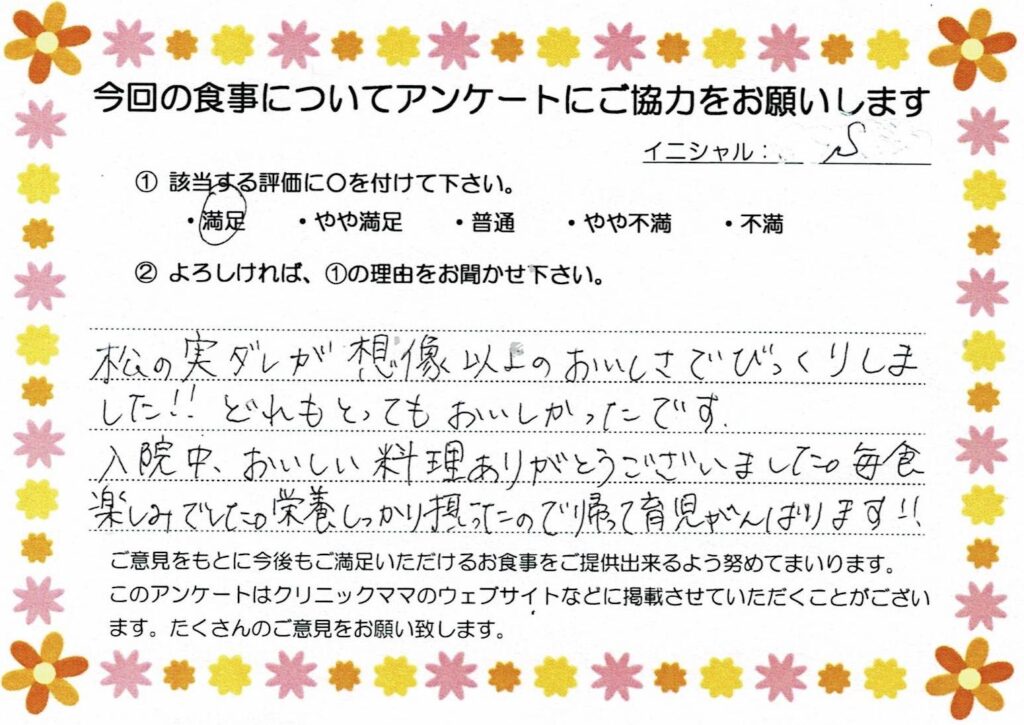 今回の食事についてアンケートにご協力をお願いします
イニシャル： S
① 該当する評価に〇を付けて下さい。
・満足 ・やや満足 ・普通 ・やや不満 ・不満
② よろしければ、①の理由をお聞かせ下さい。
松の実ダレが想像以上のおいしさでびっくりしま
した!! どれもとってもおいしかったです.
入院中、おいしい料理ありがとうございました。毎食
楽しみでした。栄養しっかり摂ったので帰って育児がんばります!!
ご意見をもとに今後もご満足いただけるお食事をご提供出来るよう努めてまいります。
このアンケートはクリニックママのウェブサイトなどに掲載させていただくことがござい
ます。たくさんのご意見をお願い致します。